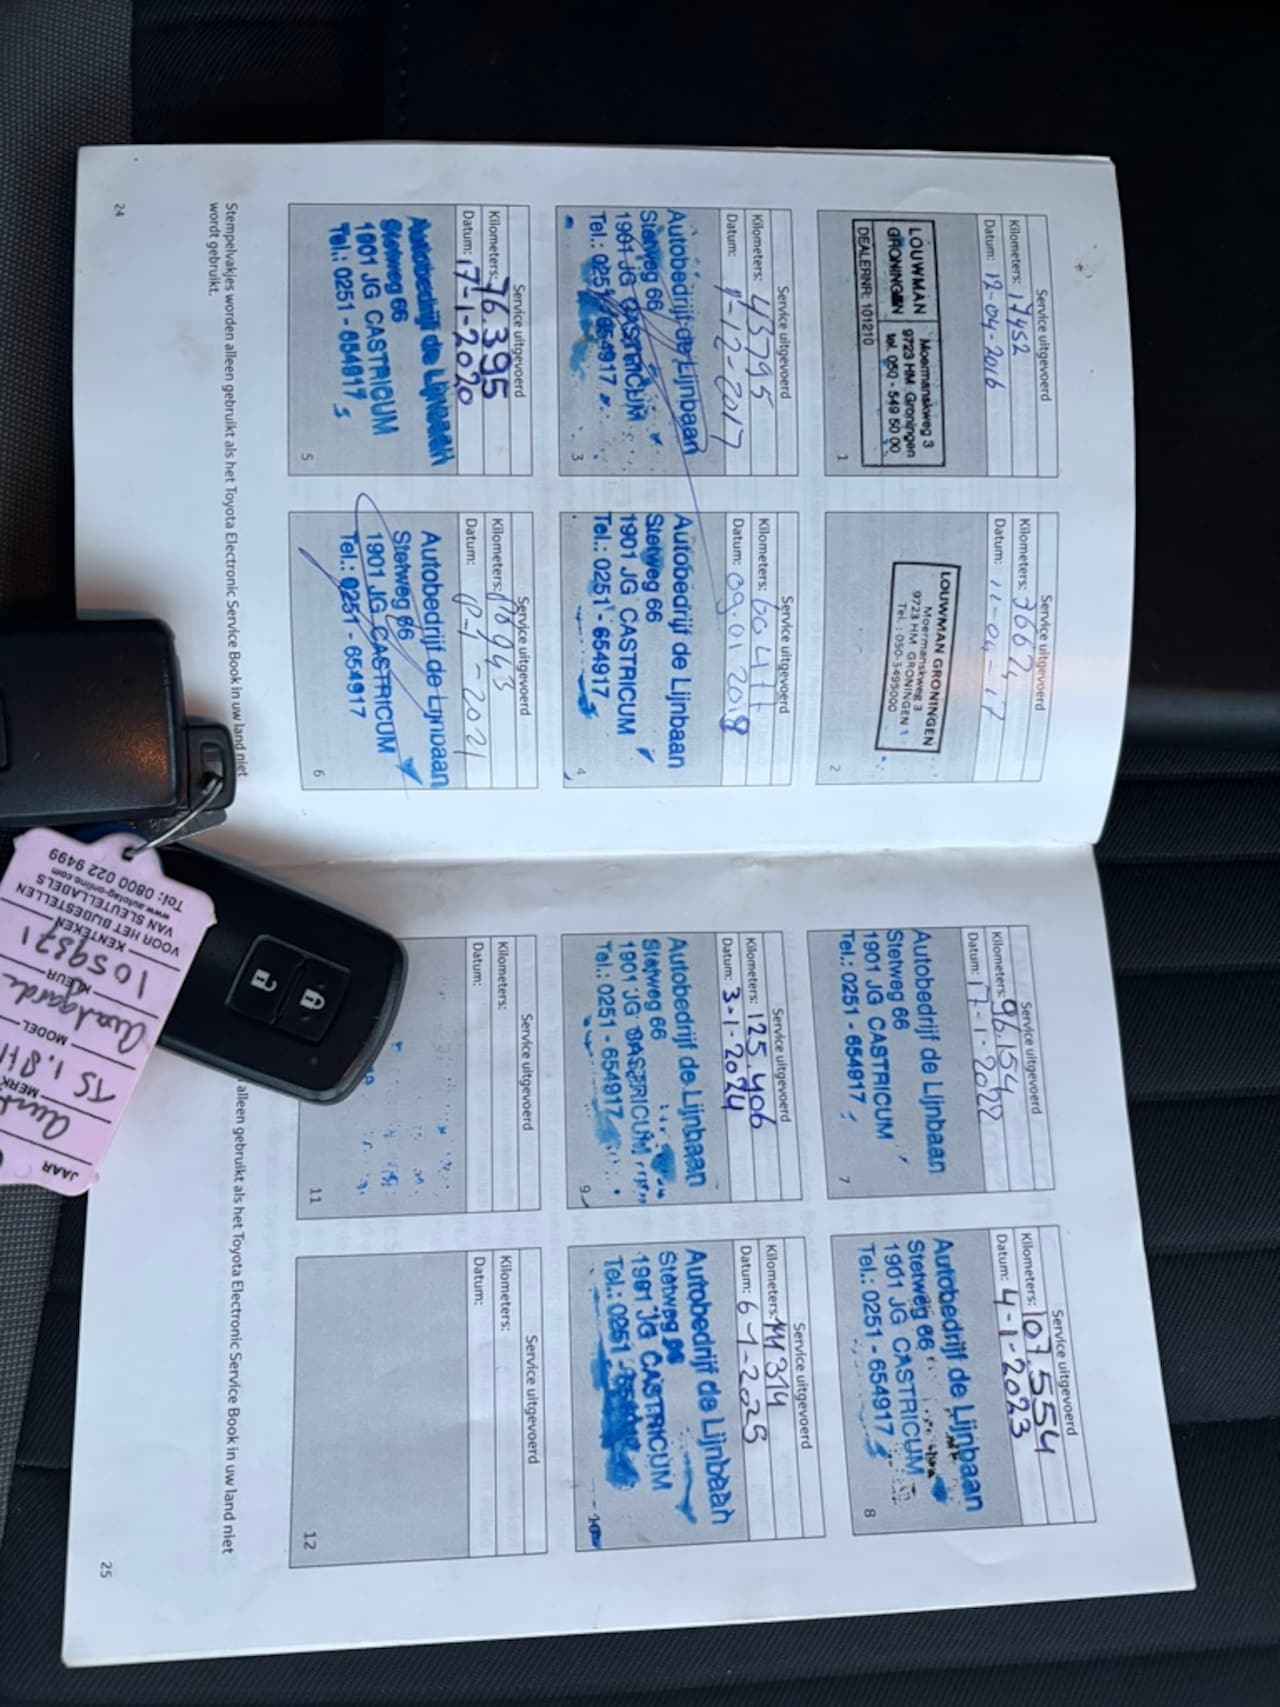 Service uitgevoerd
Kilometers: 17452
Datum: 12-04-2016
LOUWMAN
GRONINGEN
Moermanskweg 3
9723 HM Groningen
tel. 050 - 549 50 00
DEALERNR: 101210
1
Service uitgevoerd
Kilometers: 36624
Datum: 11-04-17
LOUWMAN GRONINGEN
Moermanskweg 3
9723 HM GRONINGEN
Tel.: 050-5495000
2
Service uitgevoerd
Kilometers: 43795
Datum: 1-12-2017
Autobedrijf de Lijnbaan
Stetweg 66
1901 JG CASTRICUM
Tel.: 0251 - 654917
3
Service uitgevoerd
Kilometers:
Datum: 09.01.2019
Autobedrijf de Lijnbaan
Stetweg 66
1901 JG CASTRICUM
Tel.: 0251 - 654917
4
Service uitgevoerd
Kilometers: 76.395
Datum: 17-1-2020
Autobedrijf de Lijnbaan
Stetweg 66
1901 JG CASTRICUM
Tel.: 0251 - 654917
5
Service uitgevoerd
Kilometers:
Datum: 8-1-2021
Autobedrijf de Lijnbaan
Stetweg 66
1901 JG CASTRICUM
Tel.: 0251 - 654917
6
Stempelvakjes worden alleen gebruikt als het Toyota Electronic Service Book in uw land niet
wordt gebruikt.
24
Service uitgevoerd
Kilometers: 96.154
Datum: 17-1-2022
Autobedrijf de Lijnbaan
Stetweg 66
1901 JG CASTRICUM
Tel.: 0251 - 654917
7
Service uitgevoerd
Kilometers: 107.554
Datum: 4-1-2023
Autobedrijf de Lijnbaan
Stetweg 66
1901 JG CASTRICUM
Tel.: 0251 - 654917
8
Service uitgevoerd
Kilometers: 125.406
Datum: 3-1-2024
Autobedrijf de Lijnbaan
Stetweg 66
1901 JG CASTRICUM
Tel.: 0251 - 654917
9
Service uitgevoerd
Kilometers:
Datum: 6-1-2025
Autobedrijf de Lijnbaan
Stetweg 66
1901 JG CASTRICUM
Tel.: 0251
10
Service uitgevoerd
Kilometers:
Datum:
11
Service uitgevoerd
Kilometers:
Datum:
12
alleen gebruikt als het Toyota Electronic Service Book in uw land niet
25
JAAR
MERK
TS 1.8
MODEL
KLEUR
105971
KENTEKEN
VOOR HET BIJBESTELLEN
VAN SLEUTELLABELS
www.autotag-online.com
Tel: 0800 022 9499